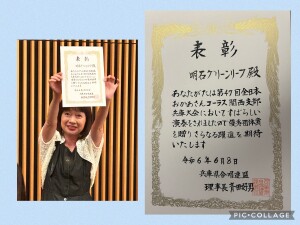 表彰
表彰
明石グリーンリーフ殿
あなたがたは第47回全日本
おかあさんコーラス関西支部
兵庫大会においてすばらしい
演奏をされましたので優秀団体賞
を贈りさらなる躍進を期待
いたします
令和6年6月8日
兵庫県合唱連盟
理事長
PIC•COLLAGE